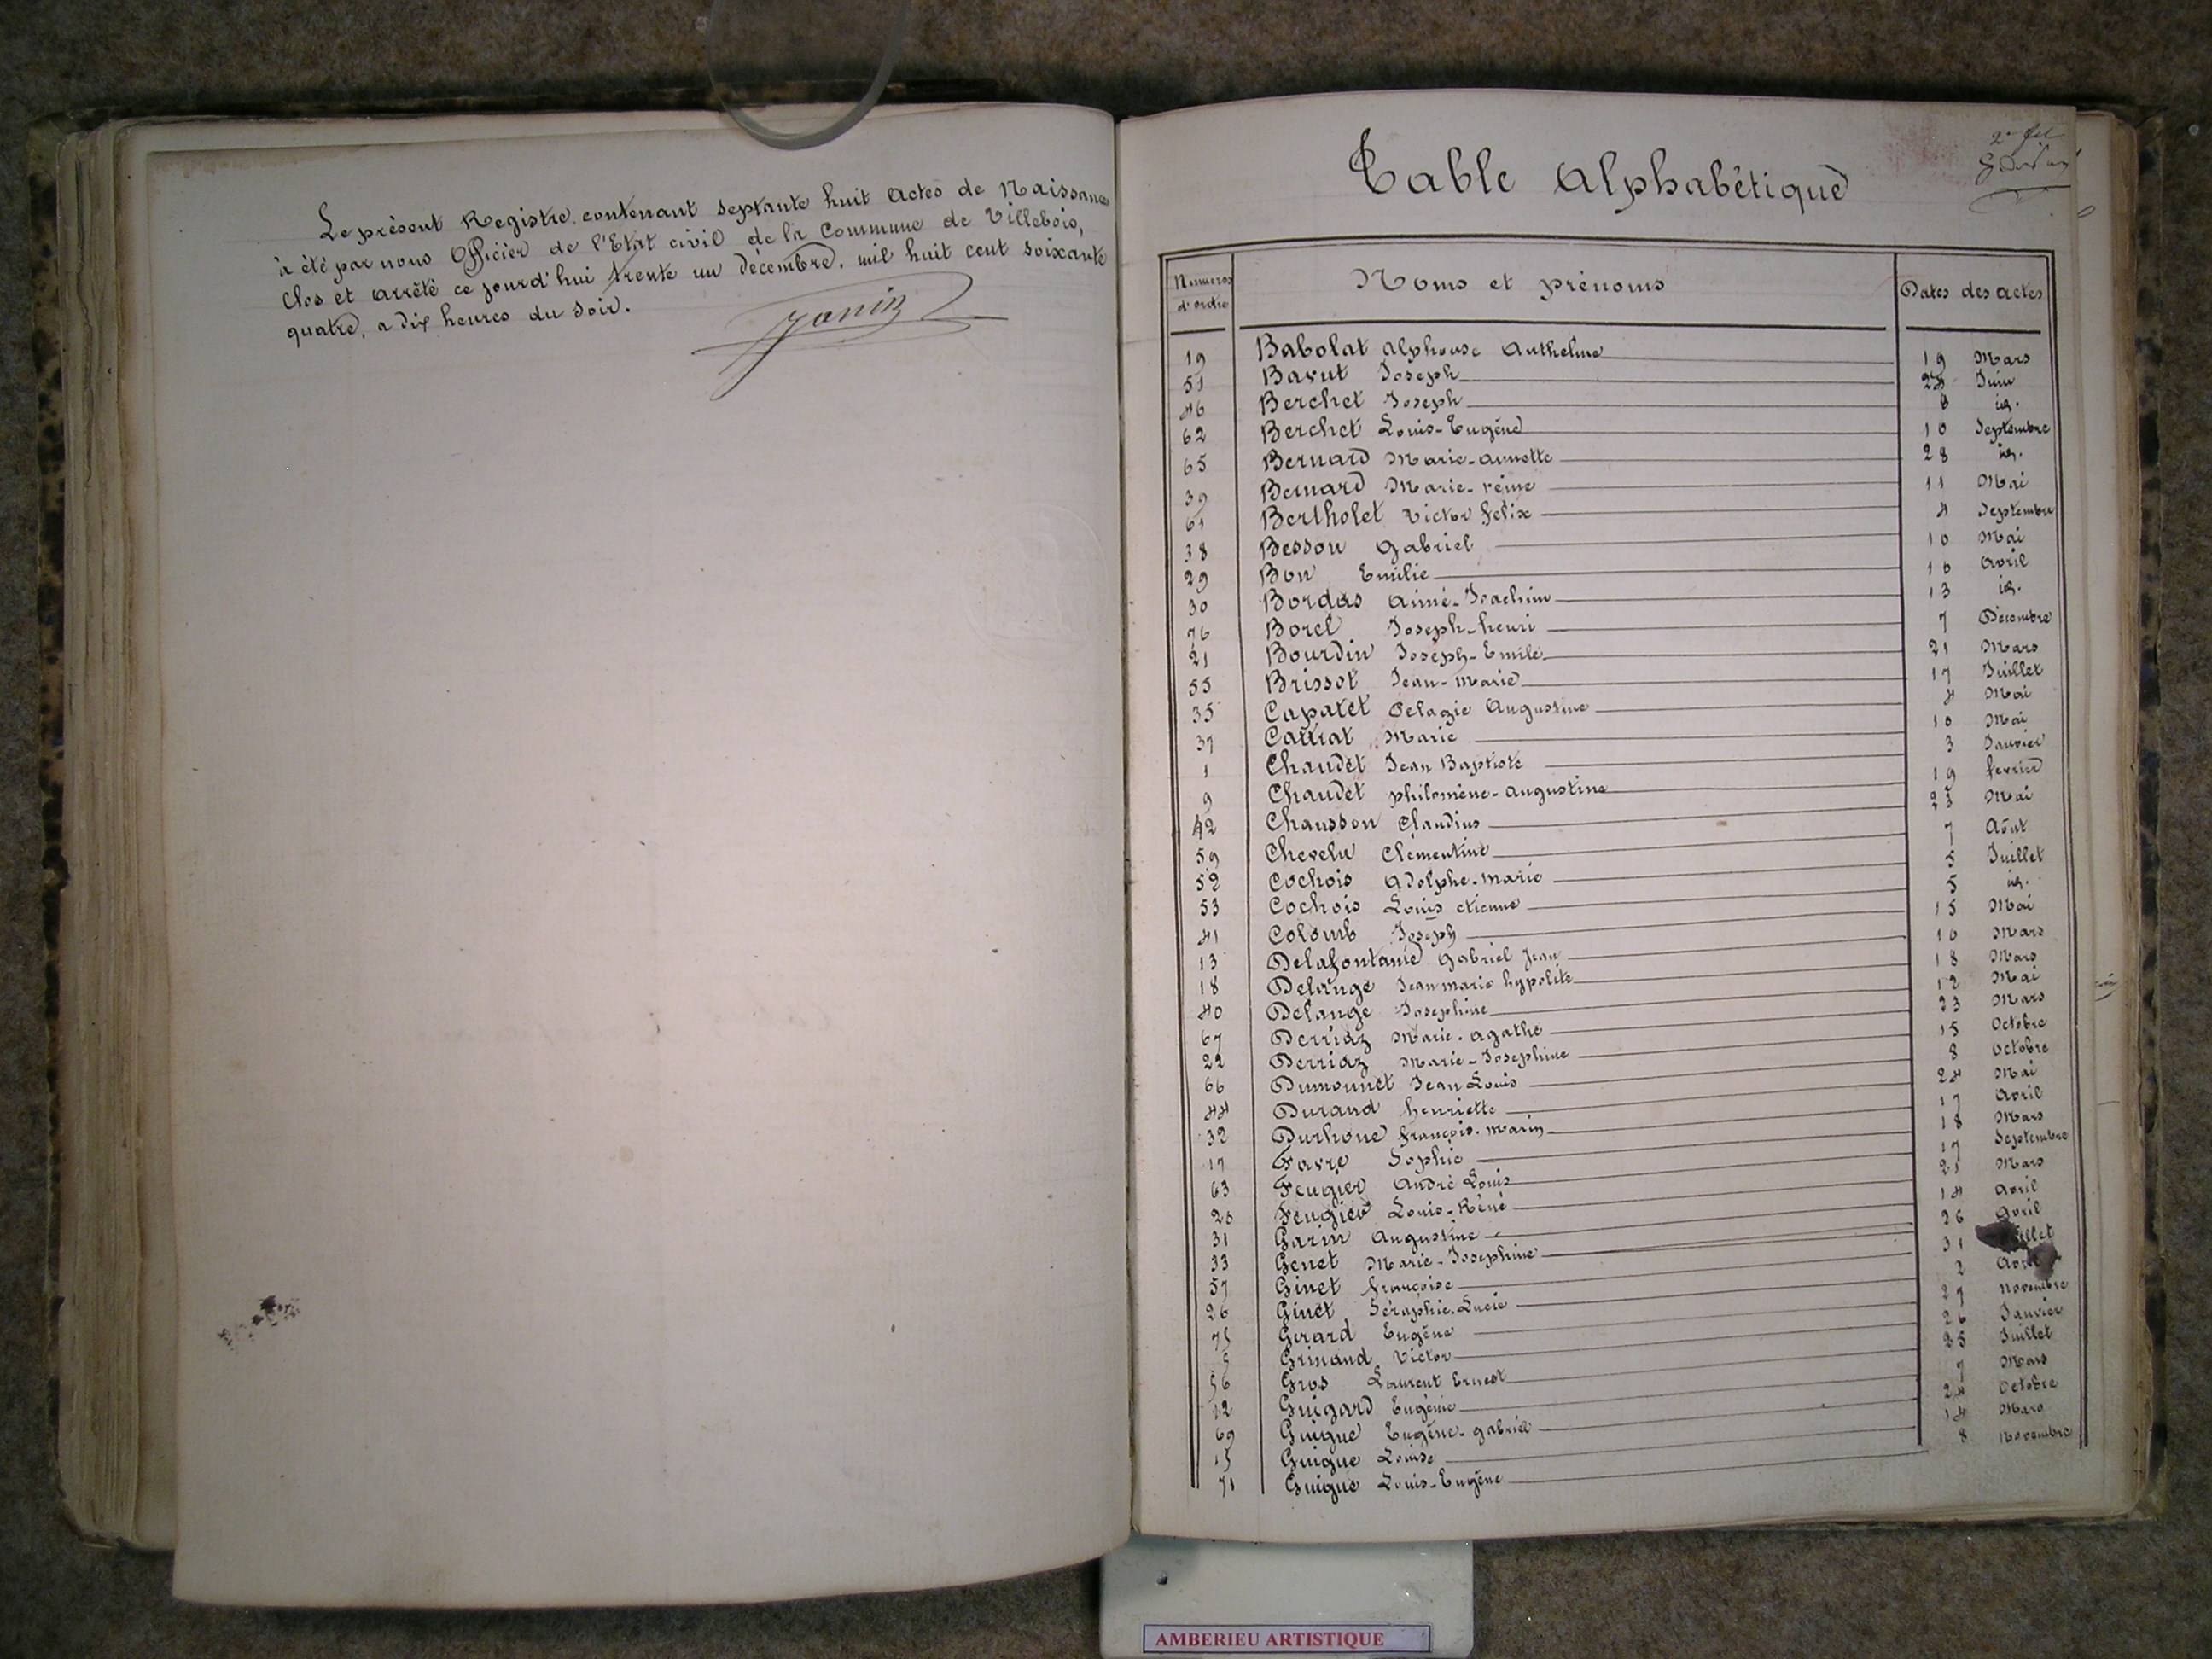 Le présent Registre contenant septante huit Actes de Naissances
à été par nous Officier de l'Etat civil de la Commune de Villebois,
Clos et arrêté ce jourd'hui trente un décembre, mil huit cent soixante
quatre, a dix heures du soir.
Janin
Table Alphabétique
Numéros d'ordre Noms et prénoms Dates des actes
19 Babolat Alphonse Anthelme 19 Mars
51 Bavut Joseph Juin
46 Berchet Joseph 8 id.
62 Berchet Louis-Eugène 10 Septembre
65 Bernard Marie-annette 28 id.
39 Bernard Marie-reine 11 Mai
61 Bertholet Victor felix 4 Septembre
38 Besson Gabriel 10 Mai
29 Bon Emilie 16 Avril
30 Bordas Aimé-Joachim 13 id.
76 Borel Joseph-henri 7 Décembre
21 Bourdin Joseph-Emile 21 Mars
55 Brissot Jean-Marie 17 Juillet
35 Caparet Pelagie Augustine 4 Mai
37 Carriat Marie 10 Mai
1 Chaudet Jean Baptiste 3 Janvier
9 Chaudet philomène-augustine 19 fevrier
42 Chausson Claudius 23 Mai
59 Chevelu Clémentine 7 Août
52 Cochois Adolphe-marie 5 Juillet
53 Cochois Louis etienne 5 id.
41 Colomb Joseph 15 Mai
13 Delafontaine Gabriel Jean 10 Mars
18 Delange Jean marie hypolite 18 Mars
40 Delange Josephine 12 Mai
67 Derriaz Marie-agathe 23 Mars
22 Derriaz Marie-Josephine 15 Octobre
66 Dumounet Jean Louis 8 Octobre
44 Durand henriette 24 Mai
32 Durhone françois-marin 17 Avril
17 Favre Sophie 18 Mars
63 Feugier André Louis 17 Septembre
Feugier Louis-Réné Mars
31 Garin Augustine 14 Avril
33 Genet Marie-Josephine 26 Avril
57 Ginet françoise 31
26 Ginet Séraphie-Lucie 2 Avril
75 Girard Eugène 27 Novembre
5 Grinand Victor 26 Janvier
56 Gros Laurent Ernest 25 Juillet
12 Guigard Eugénie 7 Mars
69 Guigue Eugène-gabriel 24 Octobre
15 Guigue Louise 14 Mars
71 Guigue Louis-Eugène 8 Novembre
AMBERIEU ARTISTIQUE